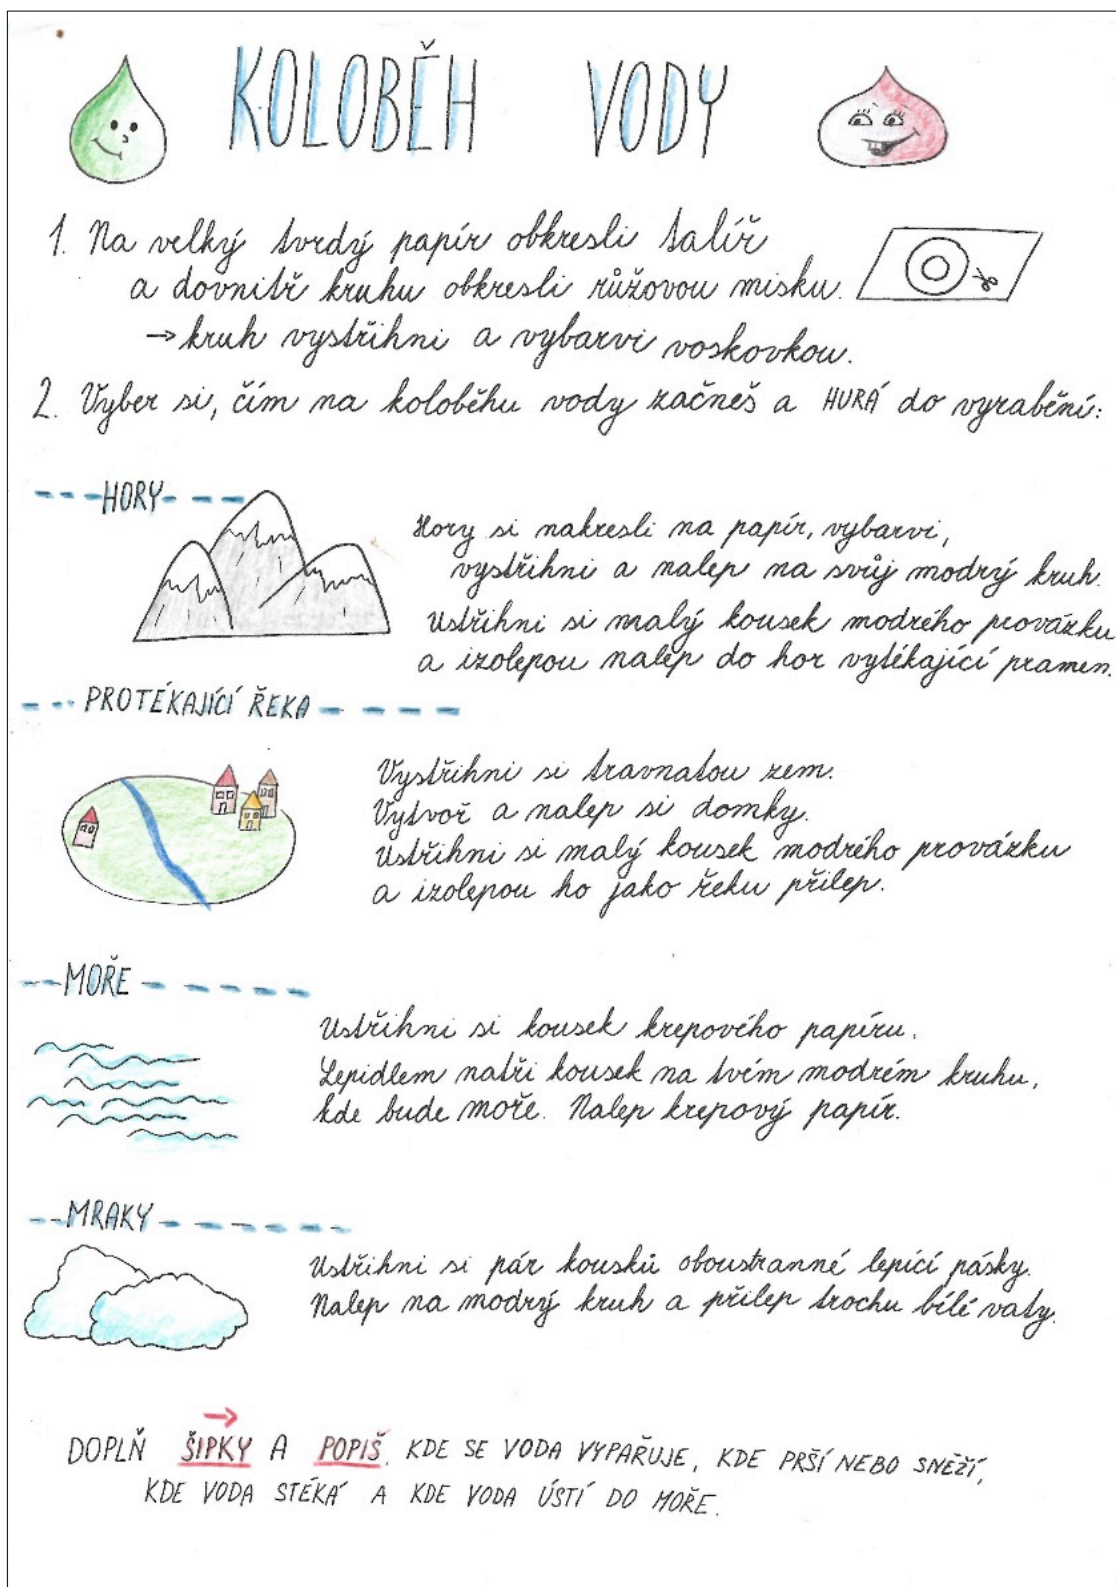 KOLOBĚH VODY
1. Na velký tvrdý papír obkresli talíř
a dovnitř kruhu obkresli růžovou misku.
→ kruh vystřihni a vybarvi voskovkou.
2. Vyber si, čím na koloběhu vody začneš a HURÁ do vyrábění:
HORY
Hory si nakresli na papír, vybarvi,
vystřihni a nalep na svůj modrý kruh.
Ustřihni si malý kousek modrého provázku
a izolepou nalep do hor vytékající pramen.
PROTÉKAJÍCÍ ŘEKA
Vystřihni si travnatou zem.
Vytvoř a nalep si domky.
Ustřihni si malý kousek modrého provázku
a izolepou ho jako řeku přilep.
MOŘE
Ustřihni si kousek krepového papíru.
Lepidlem natři kousek na tvém modrém kruhu,
kde bude moře. Nalep krepový papír.
MRAKY
Ustřihni si pár kousků oboustranné lepící pásky.
Nalep na modrý kruh a přilep trochu bílé vaty.
DOPLŇ ŠIPKY A POPIŠ, KDE SE VODA VYPAŘUJE, KDE PRŠÍ NEBO SNĚŽÍ,
KDE VODA STÉKÁ A KDE VODA ÚSTÍ DO MOŘE.